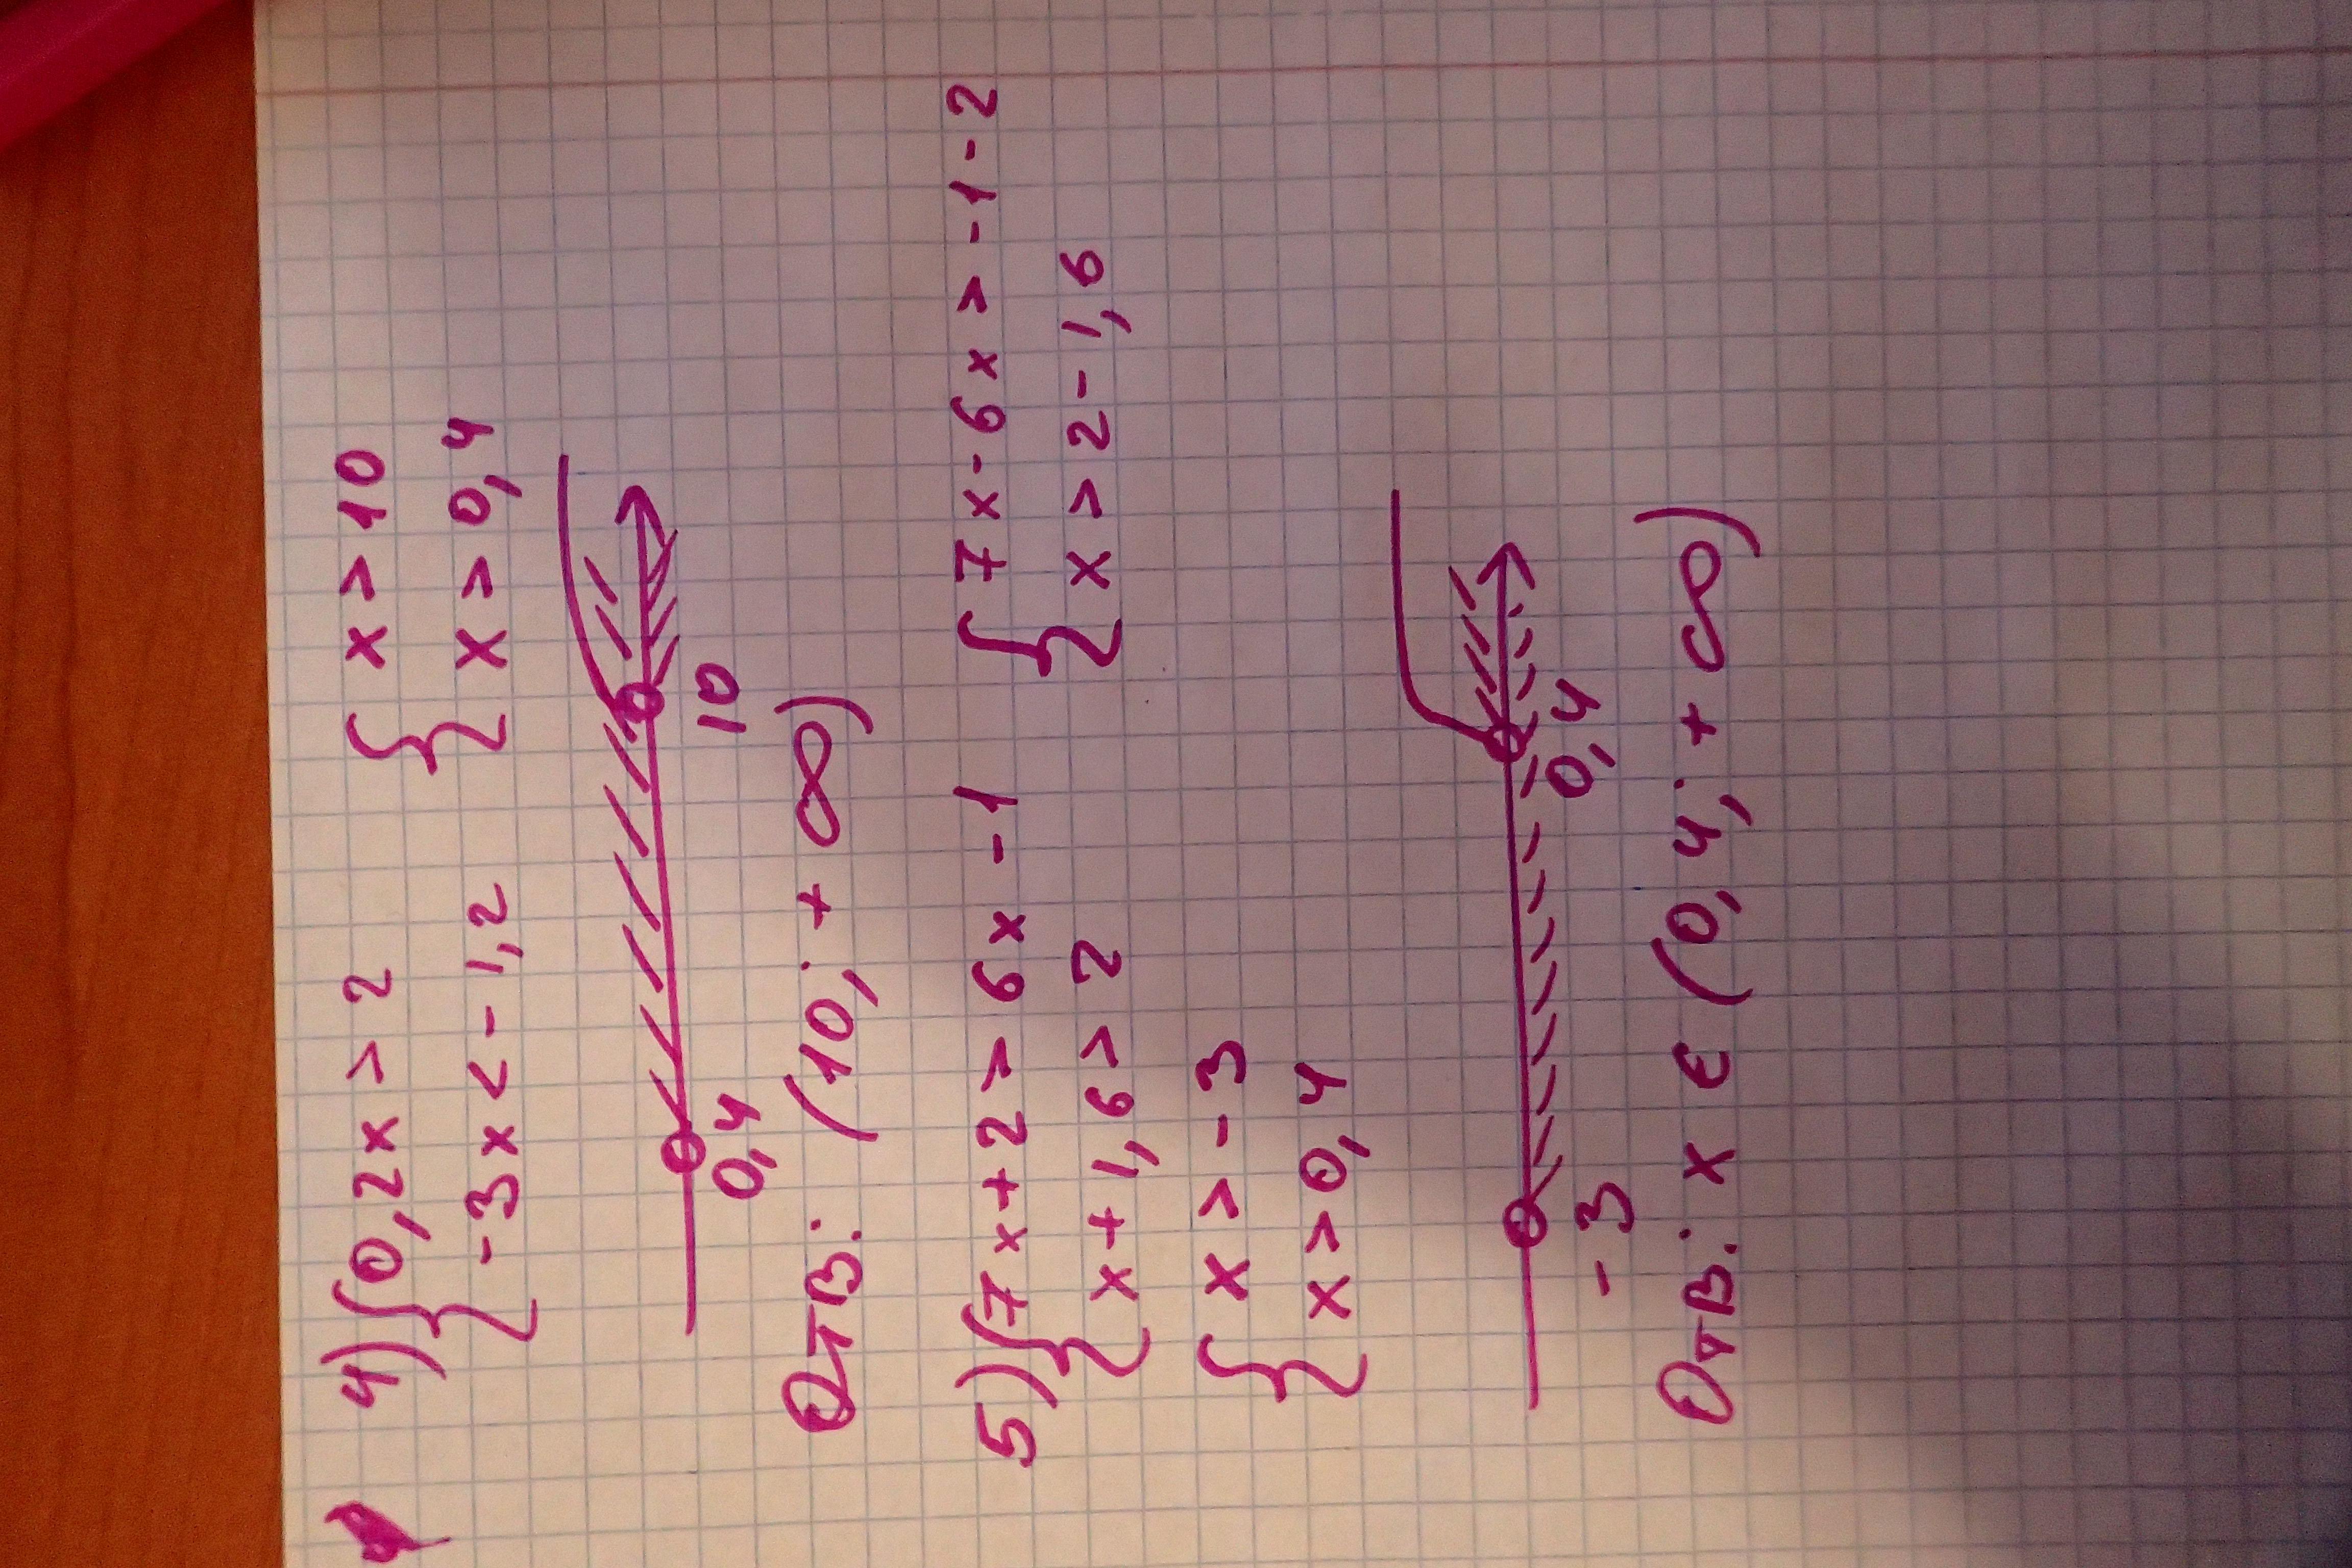 4) { 0,2x > 2 { x > 10
-3x < -1,2 x > 0,4
0,4 10
Отв: (10; + ∞)
5) { 7x+2 > 6x -1 { 7x-6x > -1-2
x+1,6 > 2 x > 2-1,6
{ x > -3
x > 0,4
-3 0,4
Отв: x ϵ (0,4; + ∞)